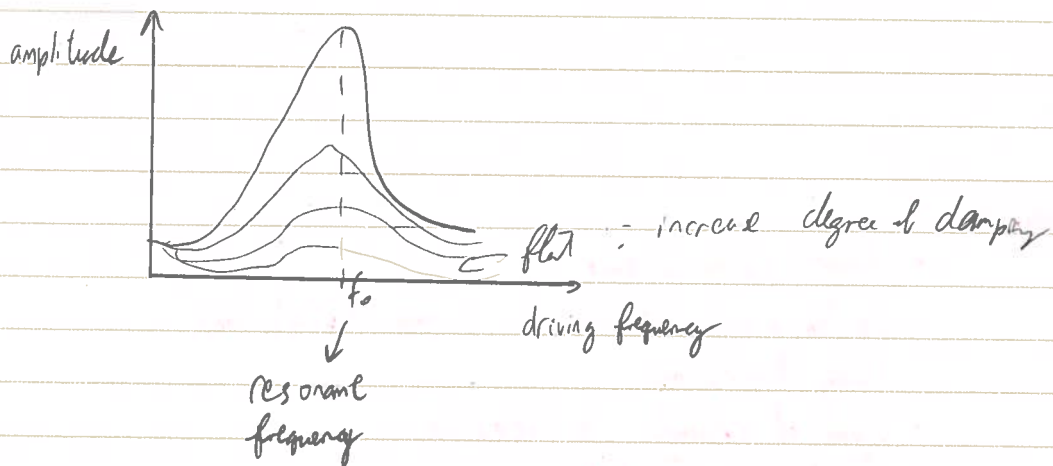 amplitude
flat : increase degree of damping
f₀
driving frequency
resonant
frequency